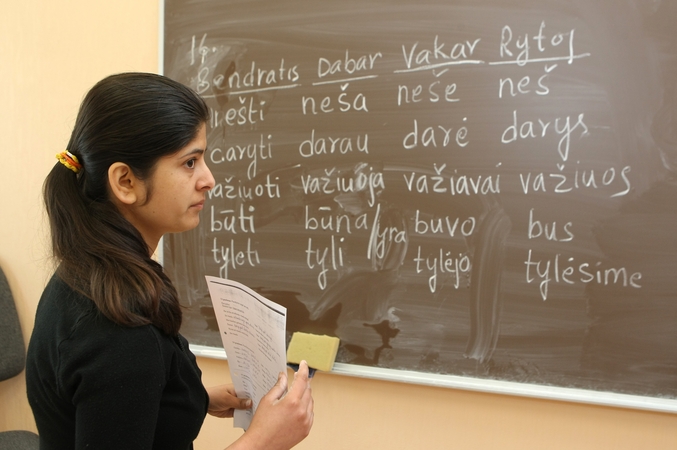 16.
Bendratis Dabar Vakar Rytoj
nešti neša nešė neš
caryti darau darė darys
važiuoti važiuoja važiavai važiuos
būti būna/yra buvo bus
tylėti tyli tylėjo tylėsime